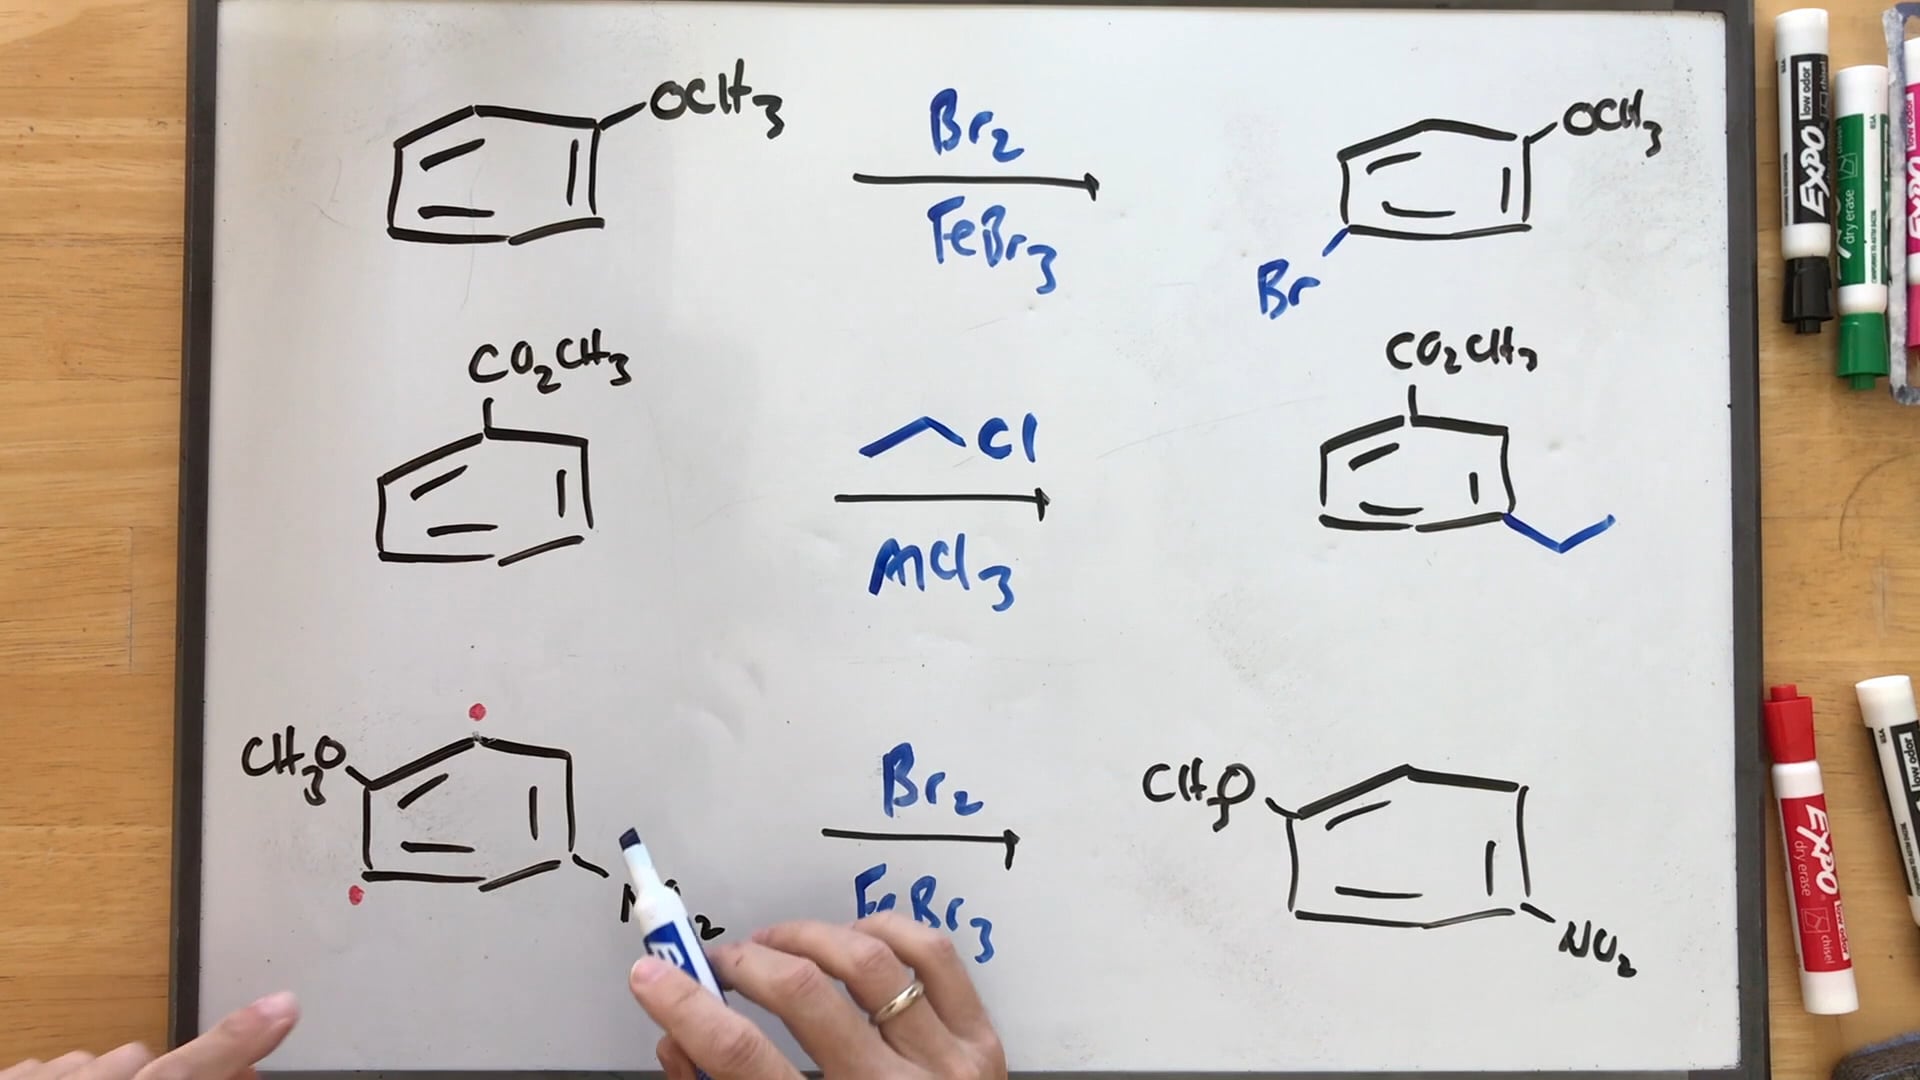 OCH3
Br2
FeBr3
OCH3
Br
CO2CH3
Cl
AlCl3
CO2CH3
CH3O
Br2
FeBr3
CH3O
NO2
EXPO
low odor
dry erase
EXPO
dry erase
low odor
chisel